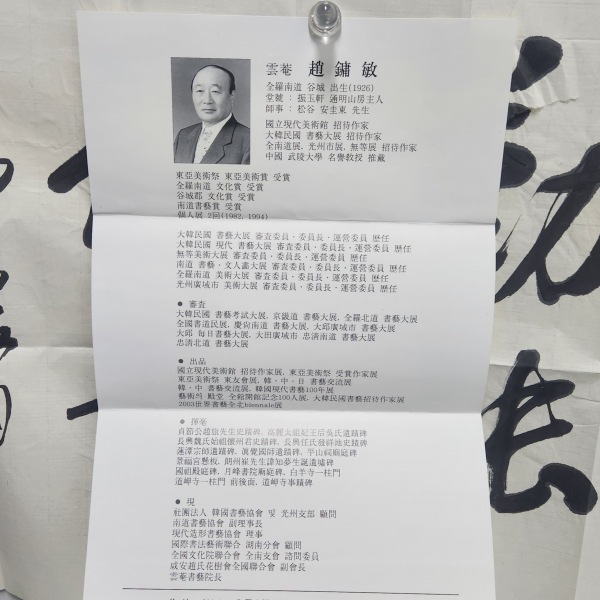 雲菴 趙鏞敏
全羅南道 谷城 出生(1926)
堂號 : 振玉軒 通明山房主人
師事 : 松谷 安圭東 先生
國立現代美術館 招待作家
大韓民國 書藝大展 招待作家
全南道展, 光州市展, 無等展 招待作家
中國 武陵大學 名譽教授 推戴
東亞美術祭 東亞美術賞 受賞
全羅南道 文化賞 受賞
谷城郡 文化賞 受賞
南道書藝賞 受賞
個人展 2回(1982, 1994)
大韓民國 書藝大展 審査委員·委員長·運營委員 歷任
大韓民國 現代 書藝大展 審査委員·委員長·運營委員 歷任
無等美術大展 審査委員·委員長·運營委員 歷任
南道 書藝·文人畵大展 審査委員·委員長·運營委員 歷任
全羅南道 美術大展 審査委員·委員長·運營委員 歷任
光州廣域市 美術大展 審査委員·委員長·運營委員 歷任
● 審査
大韓民國 書藝考試大展, 京畿道 書藝大展, 全羅北道 書藝大展
全國書道民展, 慶尙南道 書藝大展, 大邱廣域市 書藝大展
大邱 每日書藝大展, 大田廣域市 忠淸南道 書藝大展
忠淸北道 書藝大展
● 出品
國立現代美術館 招待作家展, 東亞美術祭 受賞作家展
東亞美術祭 東友會展, 韓·中·日 書藝交流展
韓·中 書藝交流展, 韓國現代書藝100年展
藝術의 殿堂 全館開館記念100人展, 大韓民國書藝招待作家展
2003世界書藝全北biennale展
● 揮毫
貞節公趙旅先生史蹟碑, 高麗太祖妃王后吳氏遺蹟碑
長興魏氏始祖懷州君史蹟碑, 長興任氏發祥地史蹟碑
蓮潭宗師遺蹟碑, 眞覺國師遺蹟碑, 平山祠廟庭碑
景福宮懸板, 朗州崔先生諱知夢生誕遺墟碑
國祖殿庭碑, 月峰書院廟庭碑, 白羊寺一柱門
道岬寺一柱門 前後面, 道岬寺事蹟碑
● 現
社團法人 韓國書藝協會 및 光州支部 顧問
南道書藝協會 副理事長
現代造形書藝協會 理事
國際書法藝術聯合 湖南分會 顧問
全國文化院聯合會 全南支會 諮問委員
咸安趙氏花樹會全國聯合會 副會長
雲菴書藝院長